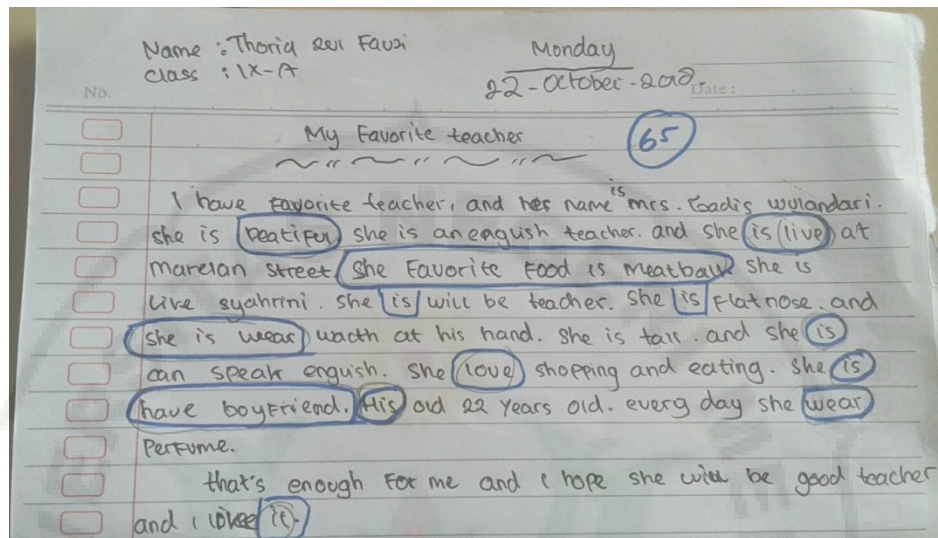 Name : Thoriq Fauzi
Monday
Class : IX-A
22 - October - 2018.
No.
Date :
My Favorite teacher
65
I have favorite teacher, and her name is mrs. Gadis wulandari.
she is beatiful she is an english teacher. and she is live at
marelan street she Favorite Food is meatball she is
Live syahrini. she is will be teacher. she is Flatnose. and
she is wear wacth at his hand. She is tall. and she is
can speak english. She love shopping and eating. she is
have boyfriend. His old 22 years old. every day she wear
Perfume.
that's enough For me and I hope she will be good teacher
and I it.